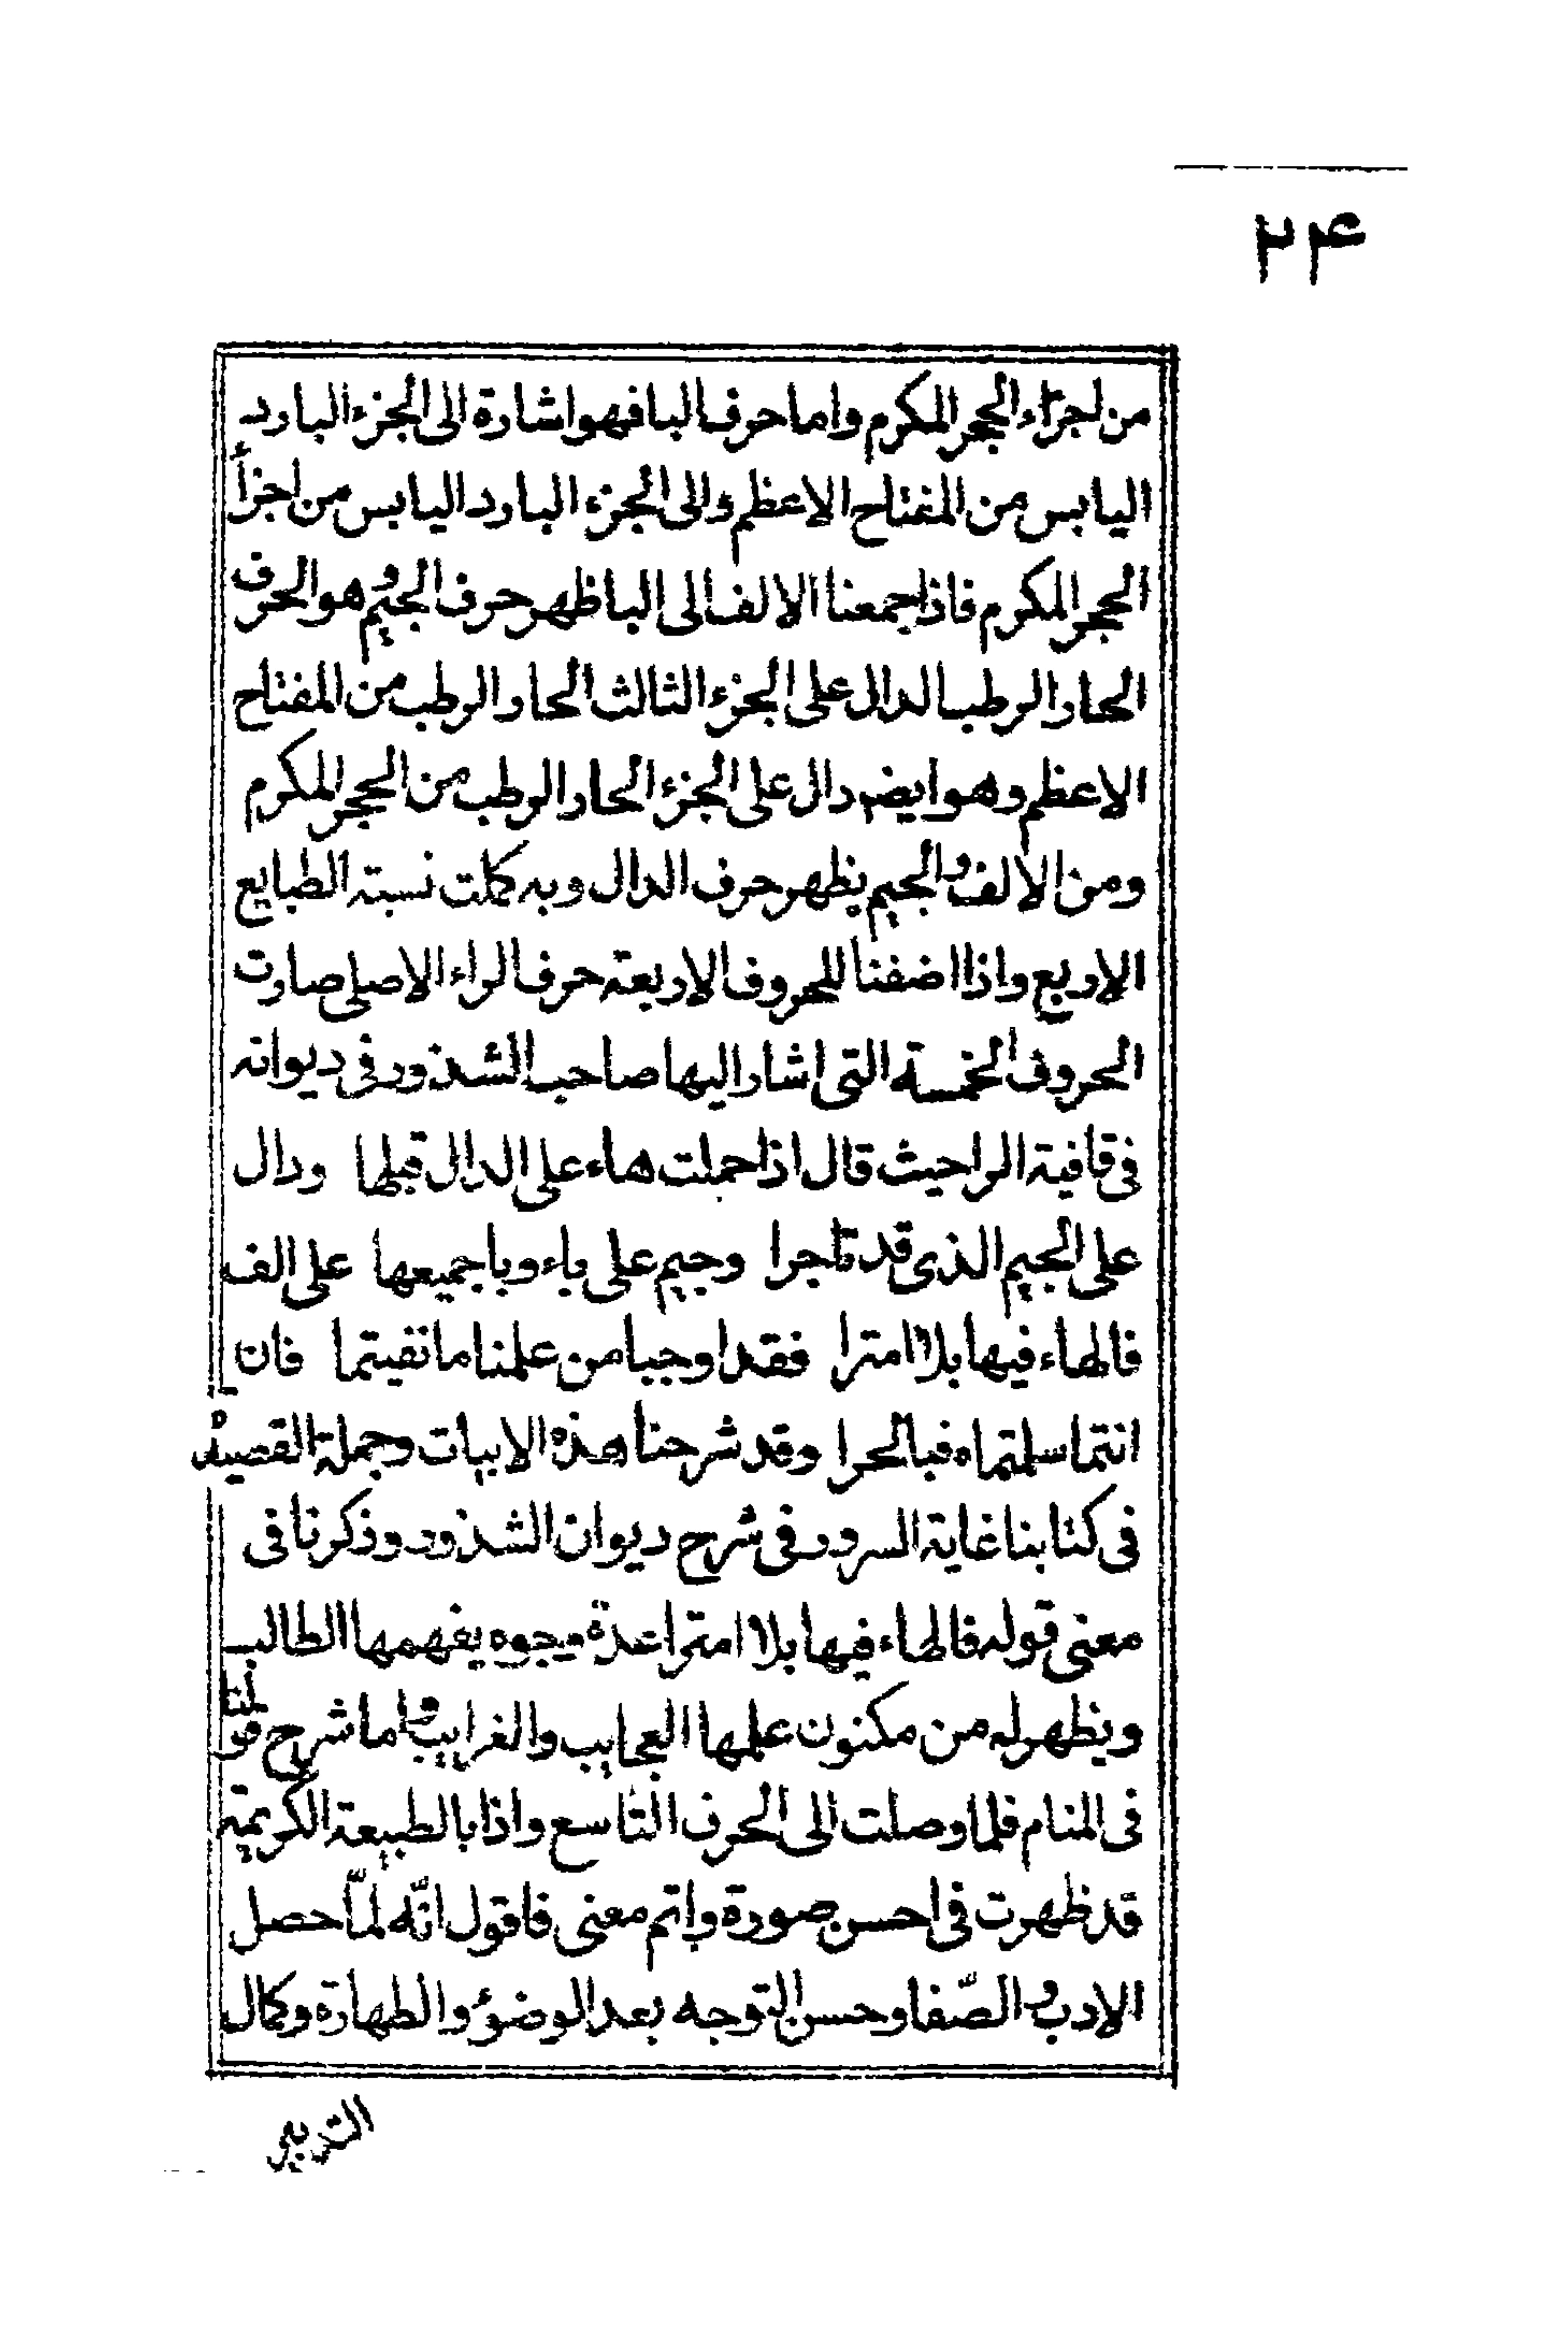 ۲۴
من اجزاء الحجر المكرم واما حرف البا فهو اشارة الى الجزء البارد
اليابس من المفتاح الاعظم والى الجزء البارد اليابس من اجزأ
الحجر المكرم فاذا جمعنا الالف الى البا ظهر حرف الجيم وهو الحرف
الحار الرطب الدال على الجزء الثالث الحار الرطب من المفتاح
الاعظم وهو ايضه دال على الجزء الحار الرطب من الحجر المكرم
ومن الالف والجيم يظهر حرف الدال وبه كملت نسبة الطبايع
الاربع واذا اضفنا للحروف الاربعة حرف الراء الاصلى صارت
الحروف الخمسة التى اشار اليها صاحب الشذور فى ديوانه
فى قافية الرا حيث قال اذا حملت هاء على الدال قبلها ودال
على الجيم الذى قد تاجرا وجيم على باء وبا جميعها على الف
فالهاء فيها بلا امترا فقد اوجبا من علمنا ما نقيتما فان
انتما سلمتماه فبالحرا وقد شرحنا هذه الابيات وجملة القصيدة
فى كتابنا غاية السرور فى شرح ديوان الشذور وذكرنا فى
معنى قوله فالهاء فيها بلا امترا عدة وجوه يفهمها الطالب
ويظهر له من مكنون علمها العجايب والغرايب واما شرح قولنا
فى المنام فلما وصلت الى الحرف التاسع واذا بالطبيعة الكريمة
قد ظهرت فى احسن صورة واتم معنى فاقول انّه لمّا حصل
الادب والصّفا وحسن التوجه بعد الوضؤ والطهارة وكمال